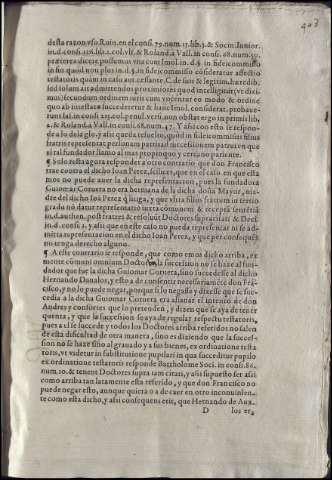 desta razon, vso Ruin. en el cons. 79. num. 13. lib. 3. & Socin. Iunior.
in d. cons. 126. lib. 2. col. vlt. & Roland. a Vall. in cons. 68. num. 50.
præterea dicere possumus vna cum Imol. in d. §. in fideicommisso
in fin. quod non plus in d. §. in fideicommisso consideratur affectio
testatoris quàm in casu aut. cessante, C. de suis & legitim. hæredib.
sed solum ait admittendos proximiores quod intelligitur (vt diximus)
secundum ordinem iuris cum vtereretur eo modo & ordine
quo ab intestato succederetur & hanc Imol. considerat. probauerunt
Tal. in cons. 215. col. penul. vers. non obstat ergo in primis lib.
& Roland. a Vall. in cons. 68. num. 47. Y assi con esto se responde
a lo de la glo. y assi queda resuelto, quod in fideicommisso filius
fratris representat personam patris ad successionem patrui en que
al tal fundador llamo al mas propinquo y cercano pariente.
¶ Solo resta agora responder a otro contrario que don Francisco
trae contra el dicho Ioan Perez, scilicet, que en el caso en que estamos
no puede auer la dicha representacion, pues la fundadora
Guiomar Coruera no era hermana de la dicha doña Mayor, madre
del dicho Ioan Perez q̃ litiga, y que vltra filios fratrum in tertio
gradu no datur representatio iuxta communem & receptã sententiã
in d. authen. post fratres & resoluũt Doctores supra citati & Decĩ.
in d. cons. 2. y assi que en este caso no pueda representar ni se admitta
representacion en el dicho Ioan Perez, y que por consiguiẽte
no tenga derecho alguno.
¶ A este contrario se responde, que como emos dicho arriba, ex
mente omnium Doctorũ, la succession no se haze al fundador
que fue la dicha Guiomar Coruera, sino succedesse al dicho
Hernando Daualos, y esto a de consentir necessariamẽte don Francisco,
y no lo puede negar, porque si lo negasse y dixesse que se succedia
a la dicha Guiomar Coruera era afianar el intento de don
Andres y consortes que lo pretenden, y dizen que se aya de tener
quenta, y que la succession se aya de regular respectu testatoris,
pues a el se succede y todos los Doctores arriba referidos no salen
de esta dificultad de otra manera, sino es diziendo que la succession
no se haze sino al grauado y a sus bienes, ex ordinatione testatoris,
vt videtur in substitutione pupilari in qua succeditur pupillo
ex ordinatione testatoris respondit Bartholome Soci. in cons. 80.
num. 10. & tenent Doctores supra iam citati, y assi supuesto ser assi
como arriba tan latamente esta referido, y que don Francisco no
puede negar esto, aunque quiera o a de caer en otro inconueniente
como esta dicho, y assi consequens erit, que Hernando de Aua-
D los era